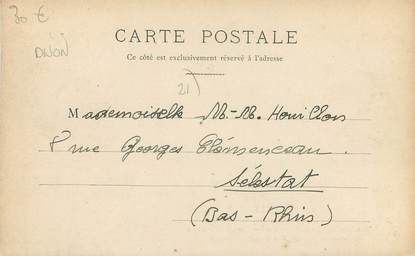 30 €
DIJON
CARTE POSTALE
Ce côté est exclusivement réservé à l'adresse
21)
Mademoiselle M.-M. Houillon
8 rue Georges Clémenceau.
Sélestat
(Bas-Rhin)